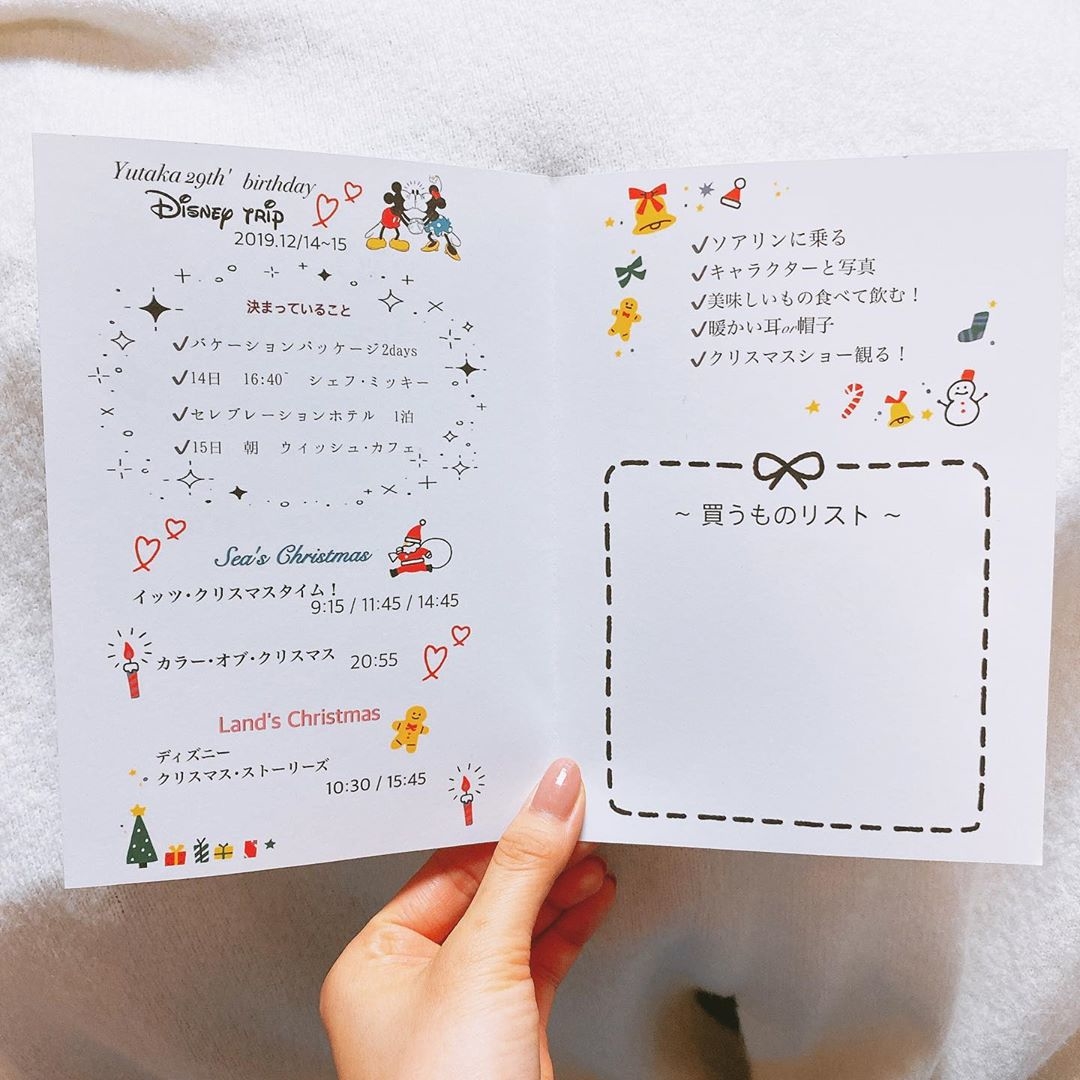 Yutaka 29th' birthday
DISNEY TRIP
2019.12/14~15
決まっていること
✓バケーションパッケージ2days
✓14日 16:40~ シェフ・ミッキー
✓セレブレーションホテル 1泊
✓15日 朝 ウィッシュ・カフェ
Sea's Christmas
イッツ・クリスマスタイム！
9:15 / 11:45 / 14:45
カラー・オブ・クリスマス 20:55
Land's Christmas
ディズニー
クリスマス・ストーリーズ
10:30 / 15:45
✓ソアリンに乗る
✓キャラクターと写真
✓美味しいもの食べて飲む！
✓暖かい耳or帽子
✓クリスマスショー観る！
~ 買うものリスト ~